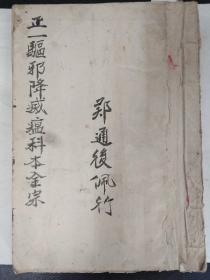 正一驅邪降滅瘟科本全宗
鄭通後佩行